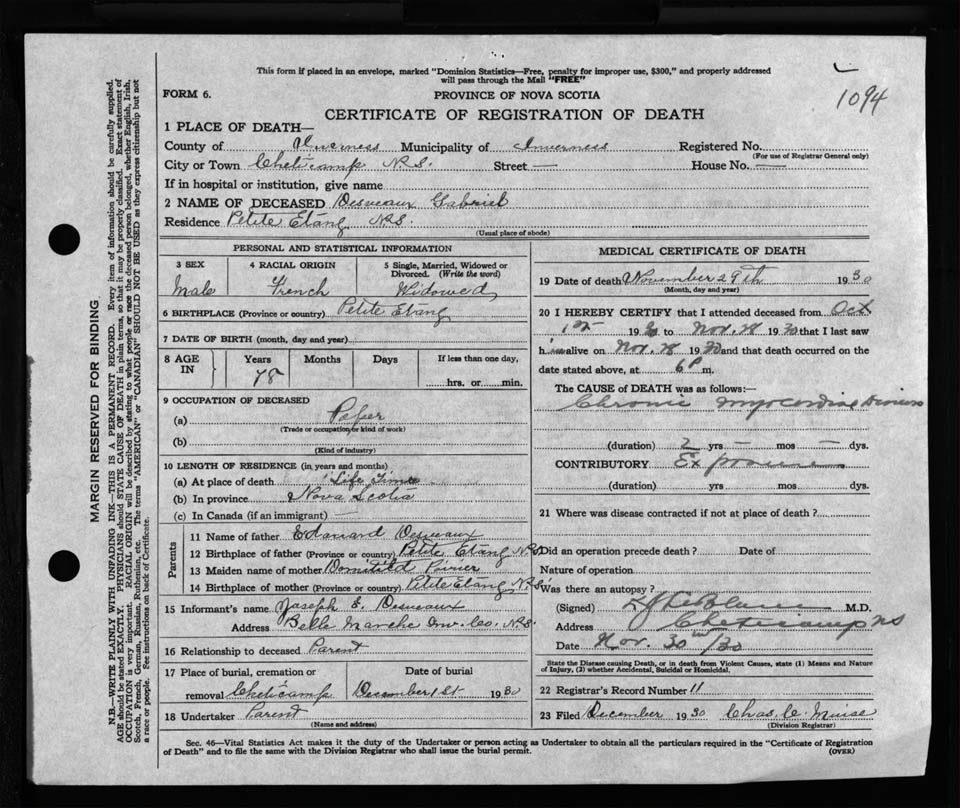 This form if placed in an envelope, marked "Dominion Statistics—Free, penalty for improper use, $300," and properly addressed
will pass through the Mail "FREE"
1094
FORM 6.
PROVINCE OF NOVA SCOTIA
CERTIFICATE OF REGISTRATION OF DEATH
1 PLACE OF DEATH—
County of Inverness Municipality of Inverness Registered No.
(For use of Registrar General only)
City or Town Cheticamp N.S. Street — House No. —
If in hospital or institution, give name
2 NAME OF DECEASED Desveaux Gabriel
Residence Petite Etang N.S.
(Usual place of abode)
PERSONAL AND STATISTICAL INFORMATION
3 SEX
Male
4 RACIAL ORIGIN
French
5 Single, Married, Widowed or
Divorced. (Write the word)
Widowed
6 BIRTHPLACE (Province or country) Petite Etang
7 DATE OF BIRTH (month, day and year)
8 AGE
IN
Years
78
Months
Days
If less than one day,
hrs. or min.
9 OCCUPATION OF DECEASED
(a)
(Trade or occupation or kind of work)
(b)
(Kind of industry)
10 LENGTH OF RESIDENCE (in years and months)
(a) At place of death Life Time
(b) In province Nova Scotia
(c) In Canada (if an immigrant) —
Parents
11 Name of father Desveaux
12 Birthplace of father (Province or country) Petite Etang N.S.
13 Maiden name of mother
14 Birthplace of mother (Province or country) Petite Etang N.S.
15 Informant's name Joseph E. Desveaux
Address Bella Marche Inv. Co. N.S.
16 Relationship to deceased Parent
17 Place of burial, cremation or
removal Cheticamp
Date of burial
December 1st 1930
18 Undertaker Parent
(Name and address)
MEDICAL CERTIFICATE OF DEATH
19 Date of death November 29th 1930
(Month, day and year)
20 I HEREBY CERTIFY that I attended deceased from Oct
1st 19 to Nov. 28 1930 that I last saw
him alive on Nov. 28 1930 and that death occurred on the
date stated above, at 6 P m.
The CAUSE of DEATH was as follows:—
Chronic
(duration) 2 yrs — mos — dys.
CONTRIBUTORY
(duration) yrs mos dys.
21 Where was disease contracted if not at place of death?
Did an operation precede death? Date of
Nature of operation
Was there an autopsy?
(Signed) M.D.
Address Cheticamp NS
Date Nov. 30th/30
State the Disease causing Death, or in death from Violent Causes, state (1) Means and Nature
of Injury, (2) whether Accidental, Suicidal or Homicidal.
22 Registrar's Record Number 11
23 Filed December 1930 Chas. C.
(Division Registrar)
Sec. 46—Vital Statistics Act makes it the duty of the Undertaker or person acting as Undertaker to obtain all the particulars required in the "Certificate of Registration
of Death" and to file the same with the Division Registrar who shall issue the burial permit.
(OVER)
MARGIN RESERVED FOR BINDING
N.B.—WRITE PLAINLY WITH UNFADING INK—THIS IS A PERMANENT RECORD. Every item of information should be carefully supplied.
AGE should be stated EXACTLY. PHYSICIANS should STATE CAUSE OF DEATH in plain terms, so that it may be properly classified. Exact statement of
OCCUPATION is very important. RACIAL ORIGIN will be described by stating to what people or race the deceased person belonged, whether English, Irish,
Scotch, French, German, Russian, Ruthenian, etc. The terms "AMERICAN" or "CANADIAN" SHOULD NOT BE USED as they express citizenship but not
a race or people. See instructions on back of Certificate.